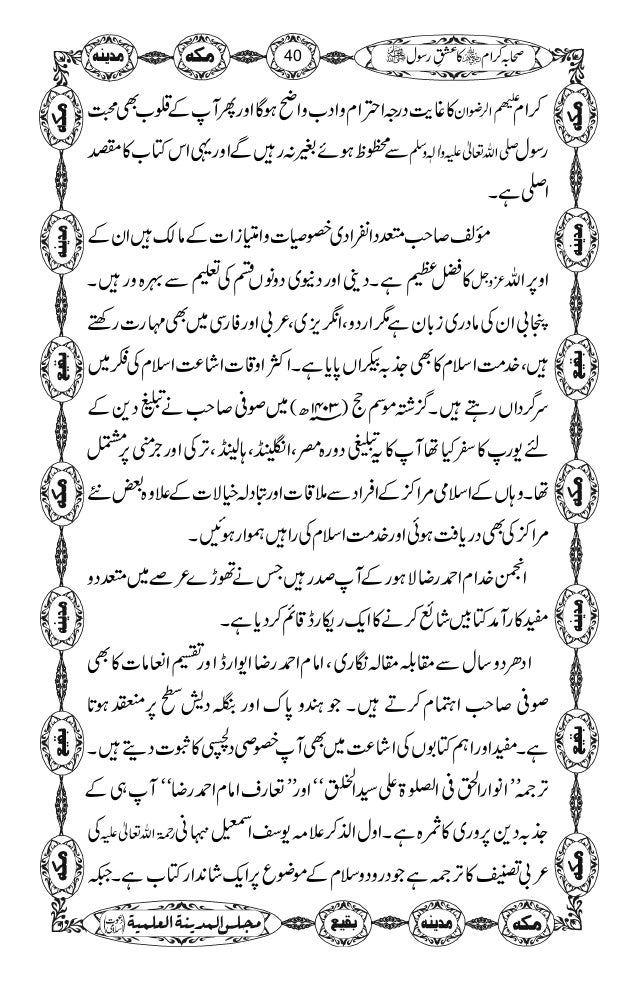 صحابہ کرام رضی اللہ عنہم کا عشق رسول صلی اللہ علیہ وسلم
40
مکہ
مدینہ
کرام علیھم الرضوان کا غایت درجہ احترام وادب واضح ہوگا اور پھر آپ کے قلوب بھی محبت
رسول صلی اللہ تعالیٰ علیہ والہ وسلم سے محظوظ ہوئے بغیر نہ رہیں گے اور یہی اس کتاب کا مقصد
اصلی ہے۔
مؤلف صاحب متعدد انفرادی خصوصیات وامتیازات کے مالک ہیں ان کے
اوپر اللہ عزوجل کا فضل عظیم ہے۔ دینی اور دنیوی دونوں قسم کی تعلیم سے بہرہ ور ہیں۔
پنجابی ان کی مادری زبان ہے مگر اردو، انگریزی، عربی اور فارسی میں بھی مہارت رکھتے
ہیں، خدمت اسلام کا بھی جذبہ بیکراں پایا ہے۔ اکثر اوقات اشاعت اسلام کی فکر میں
سرگرداں رہتے ہیں۔ گزشتہ موسم حج (۱۴۰۳ھ) میں صوفی صاحب نے تبلیغ دین کے
لئے یورپ کا سفر کیا تھا آپ کا یہ تبلیغی دورہ مصر، انگلینڈ، ہالینڈ، ترکی اور جرمنی پر مشتمل
تھا۔ وہاں کے اسلامی مراکز کے افراد سے ملاقات اور تبادلہ خیالات کے علاوہ بعض نئے
مراکز کی بھی دریافت ہوئی اور خدمت اسلام کی راہیں ہموار ہوئیں۔
انجمن خدام احمد رضا لاہور کے آپ صدر ہیں جس نے تھوڑے عرصے میں متعدد و
مفید کارآمد کتابیں شائع کرنے کا ایک ریکارڈ قائم کر دیا ہے۔
ادھر دو سال سے مقابلہ مقالہ نگاری، امام احمد رضا ایوارڈ اور تقسیم انعامات کا بھی
صوفی صاحب اہتمام کرتے ہیں۔ جو ہندو پاک اور بنگلہ دیش سطح پر منعقد ہوتا
ہے۔ مفید اور اہم کتابوں کی اشاعت میں بھی آپ خصوصی دلچسپی کا ثبوت دیتے ہیں۔
ترجمہ ’’انوار الحق فی الصلوۃ علی سید الخلق‘‘ اور ’’تعارف امام احمد رضا‘‘ آپ ہی کے
جذبہ دین پروری کا ثمرہ ہے۔ اول الذکر علامہ یوسف اسمعیل نبہانی رحمۃ اللہ تعالیٰ علیہ کی
عربی تصنیف کا ترجمہ ہے جو درود وسلام کے موضوع پر ایک شاندار کتاب ہے۔ جبکہ
مکہ
مدینہ
بقیع
مکہ
مدینہ
بقیع
مکہ
مکہ
مدینہ
بقیع
مکہ
مدینہ
بقیع
مکہ
مکہ
مدینہ
بقیع
مجلس المدینۃ العلمیۃ